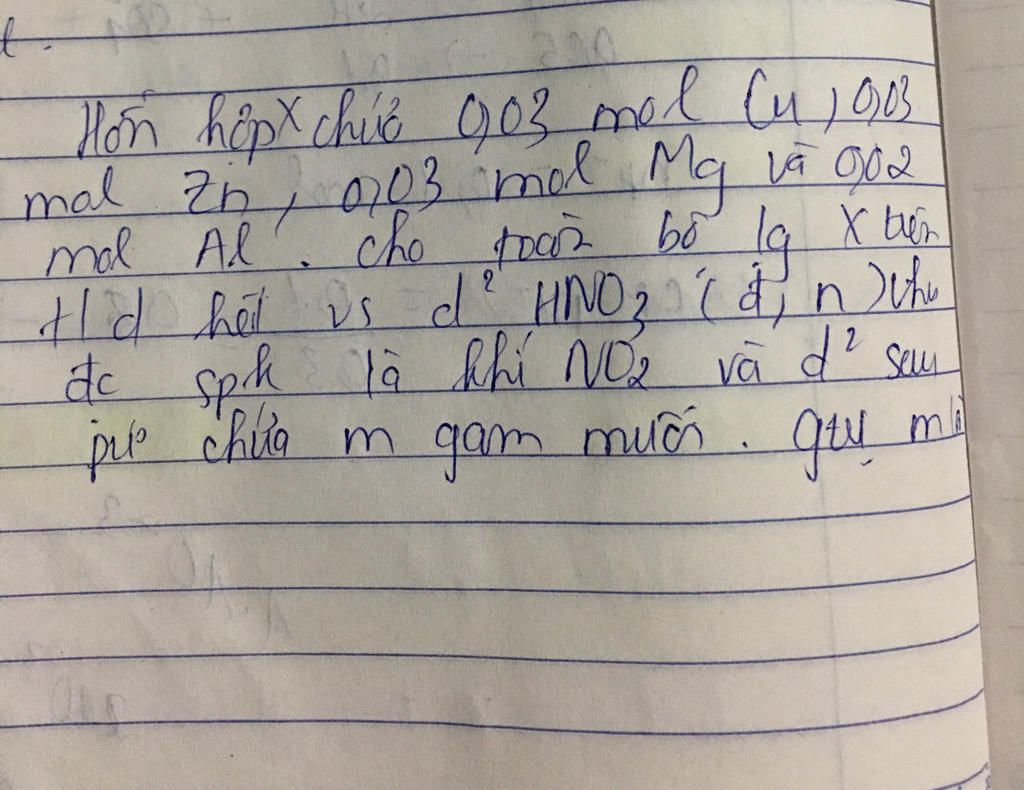 Hỗn hợp X chứa 0,03 mol Cu, 0,03
mol Zn, 0,03 mol Mg và 0,02
mol Al. cho toàn bộ lg X trên
t/d hết vs d² HNO3 (đ, n) thu
đc spk là khí NO2 và d² sau
pư chứa m gam muối. gtrị m là